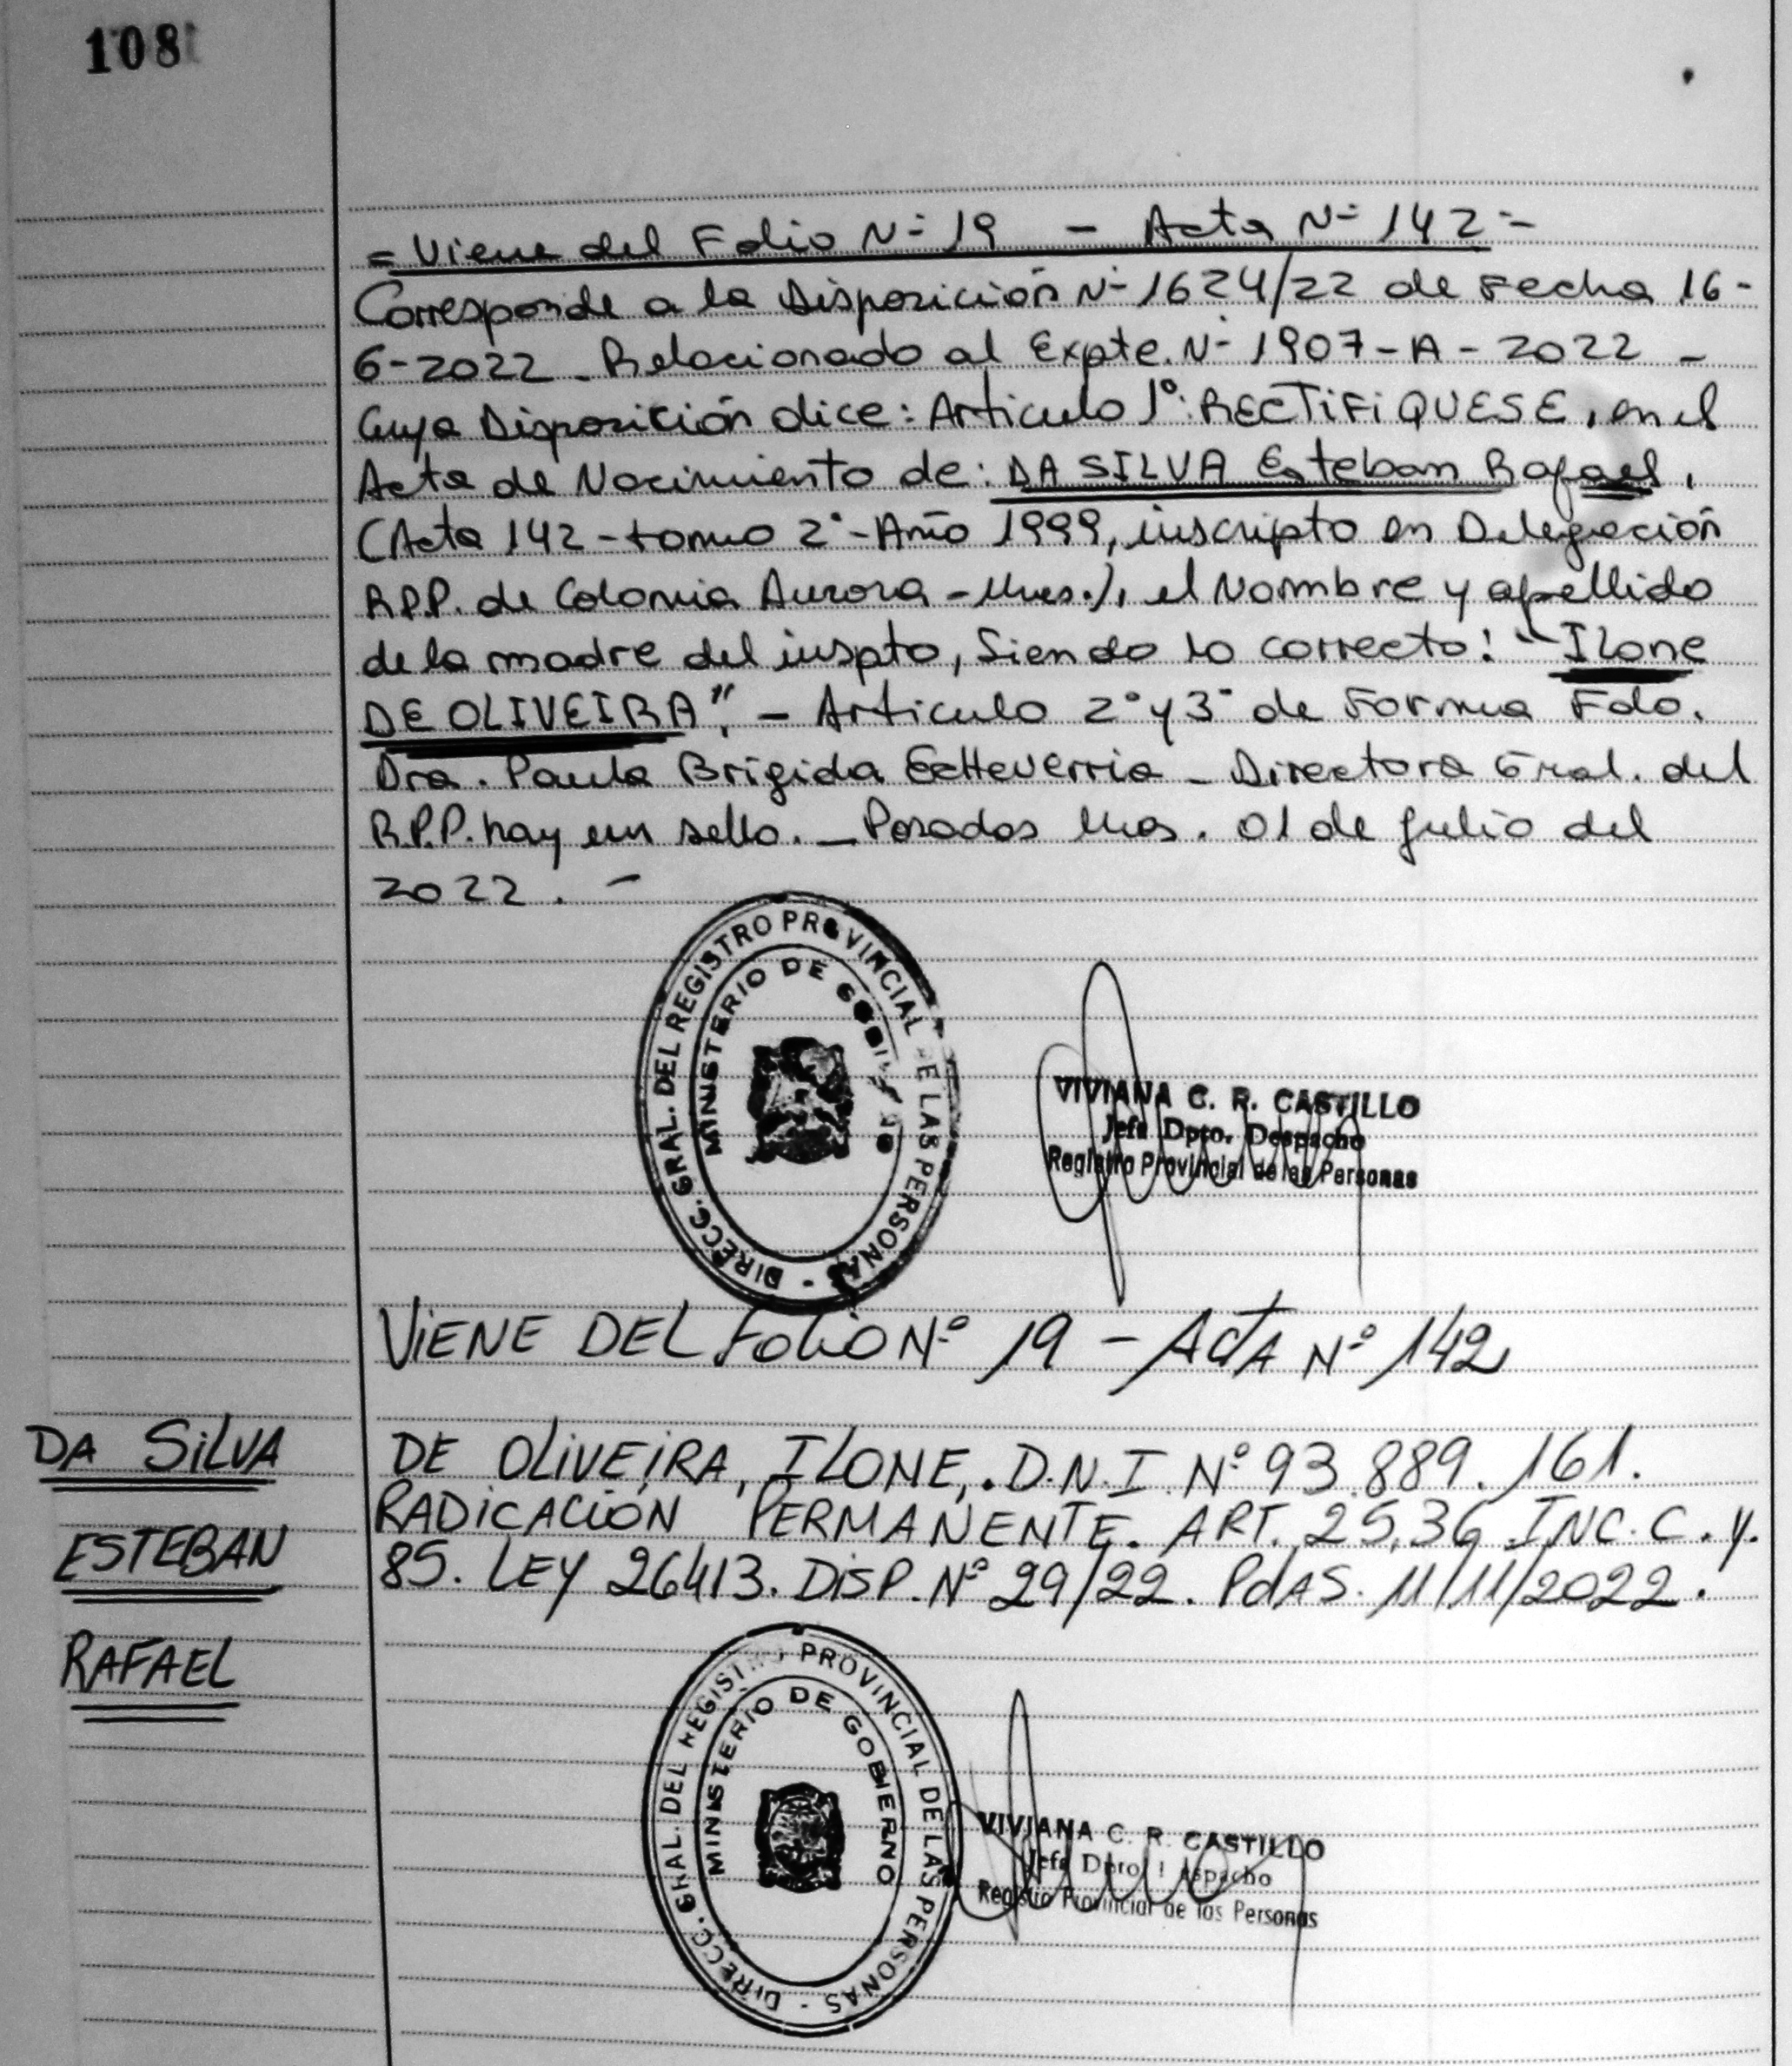 108
= Viene del Folio N- 19 - Acta N- 142 =
Corresponde a la Disposición N- 1624/22 de Fecha 16-
6-2022 - Relacionado al Expte. N- 1907-A-2022 -
Cuya Disposición dice: Articulo 1°: RECTIFIQUESE, en el
Acta de Nacimiento de: DA SILVA Esteban Rafael,
(Acta 142 - tomo 2° - Año 1999, inscripto en Delegación
R.P.P. de Colonia Aurora - Mnes.), el Nombre y apellido
de la madre del inspto, Siendo lo correcto: "Ilone
DE OLIVEIRA". - Articulo 2° y 3° de Forma Fdo.
Dra. Paula Brigida Echeverria - Directora Gral. del
R.P.P. hay un sello. - Posadas Mnes. 01 de Julio del
2022. -
DIRECC. GRAL. DEL REGISTRO PROVINCIAL DE LAS PERSONAS -
MINISTERIO DE GOBIERNO
VIVIANA C. R. CASTILLO
Jefa Dpto. Despacho
Registro Provincial de las Personas
VIENE DEL FOLIO N° 19 - ACTA N° 142
DA SILVA
ESTEBAN
RAFAEL
DE OLIVEIRA, ILONE,. D.N.I N° 93.889.161.
RADICACION PERMANENTE. ART. 25,36 INC. C. Y.
85. LEY 26413. DISP. N° 29/22. PDAS. 11/11/2022.
DIRECC. GRAL. DEL REGISTRO PROVINCIAL DE LAS PERSONAS -
MINISTERIO DE GOBIERNO
VIVIANA C. R. CASTILLO
Jefa Dpto. Despacho
Registro Provincial de las Personas